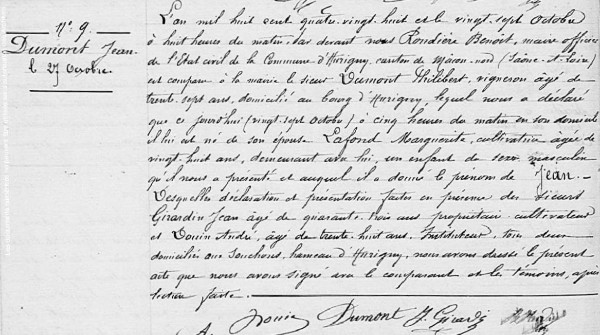 N° 9
Dumont Jean
le 27 Octobre
L'an mil huit cent quatre-vingt-huit et le vingt-sept Octobre
à huit heures du matin, par devant nous Rondière Benoit, maire officier
de l'Etat civil de la Commune d'Hurigny, canton de Macon-nord (Saône-et-Loire)
est comparu à la mairie le sieur Dumont Philibert, vigneron âgé de
trente-sept ans, domicilié au bourg d'Hurigny, lequel nous a déclaré
que ce jourd'hui (vingt-sept Octobre) à cinq heures du matin en son domicile
il lui est né de son épouse Lafond Marguerite, cultivatrice âgée de
vingt-huit ans, demeurant avec lui, un enfant du sexe masculin
qu'il nous a présenté et auquel il a donné le prénom de Jean. —
Desquelles déclaration et présentation faites en présence des Sieurs
Girardin Jean âgé de quarante-trois ans propriétaire-cultivateur
et Douin André, âgé de trente-huit ans, Instituteur, tous deux
domiciliés aux Souchons, hameau d'Hurigny, nous avons dressé le présent
acte que nous avons signé avec le comparant et les témoins, après
lecture faite.
Douin Dumont J. Girardin